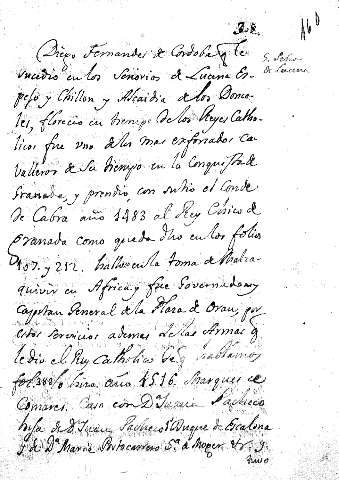 38
160
Diego Fernandes de Cordoba q le
5. Señor
de Lucena
sucedio en los Señorios de Lucena Es-
pejo y Chillon y Alcaidia de los Donce-
les, florecio en tiempo de los Reyes Catho-
licos fue uno de los mas esforzados ca-
valleros de su tiempo en la Conquista de
Granada, y prendio, con su tio el Conde
de Cabra año 1483 al Rey Chico de
Granada como queda dho en los folios
107. y 212. hallose en la toma de Mazar
quivir en Africa y fue Governador y
Capitan General de la Plaza de Oran, por
estos servicios ademas de las Armas q
le dio el Rey Catholico de q hablamos
fol. 380 lo hizo año 1516. Marques de
Comares. Caso con Dª Juana Pacheco
hija de Dn Juan Pacheco Duque de Escalona
y de Dª Maria Portocarrero Sª de Moger &. y
tuvo